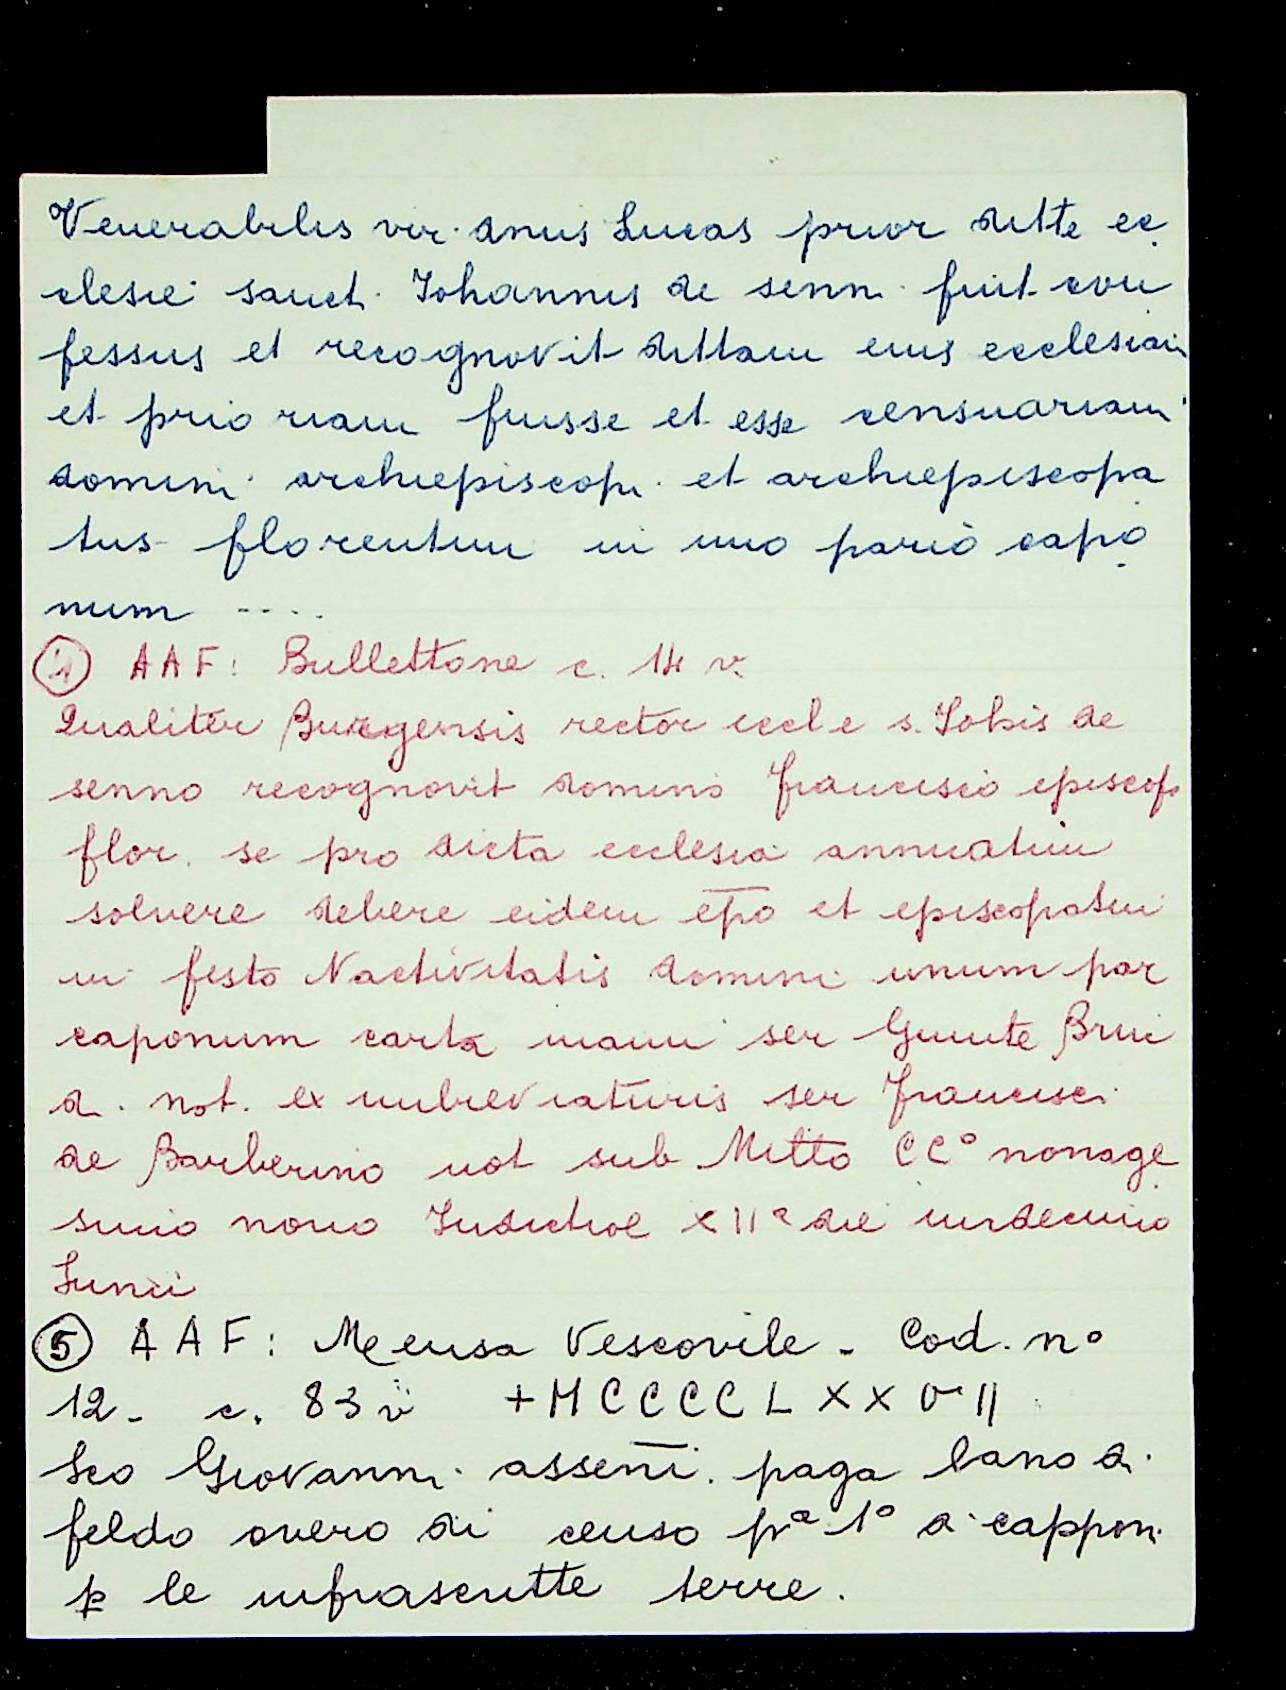 Venerabilis vir dnus Lucas prior ditte ec
clesie sanct. Iohannis de senni fuit con
fessus et recognovit dittam eius ecclesiam
et prioriam fuisse et esse censuariam
domini archiepiscopi et archiepiscopa
tus florentini in uno pario capo
num ....
④ AAF: Bullettone c. 14 v.
Qualiter Burgensis rector eccl e s. Iohis de
senno recognovit domino francisco episcopo
flor. se pro dicta ecclesia annuatim
solvere debere eidem epo et episcopatui
in festo Nactivitatis domini unum par
caponum carta manu ser Giunte Bru
d. not. ex imbreviaturis ser francisci
de Barberino not sub Millo CC° nonage
simo nono Indictioe XIIª die undecimo
Iunii
⑤ AAF: Mensa Vescovile - Cod. n°
12 - c. 83 v + M C C C C L X X V II
Sco Giovanni asseni. paga lano di
feldo overo di censo pª 1° di capponi
p le infrascritte terre.